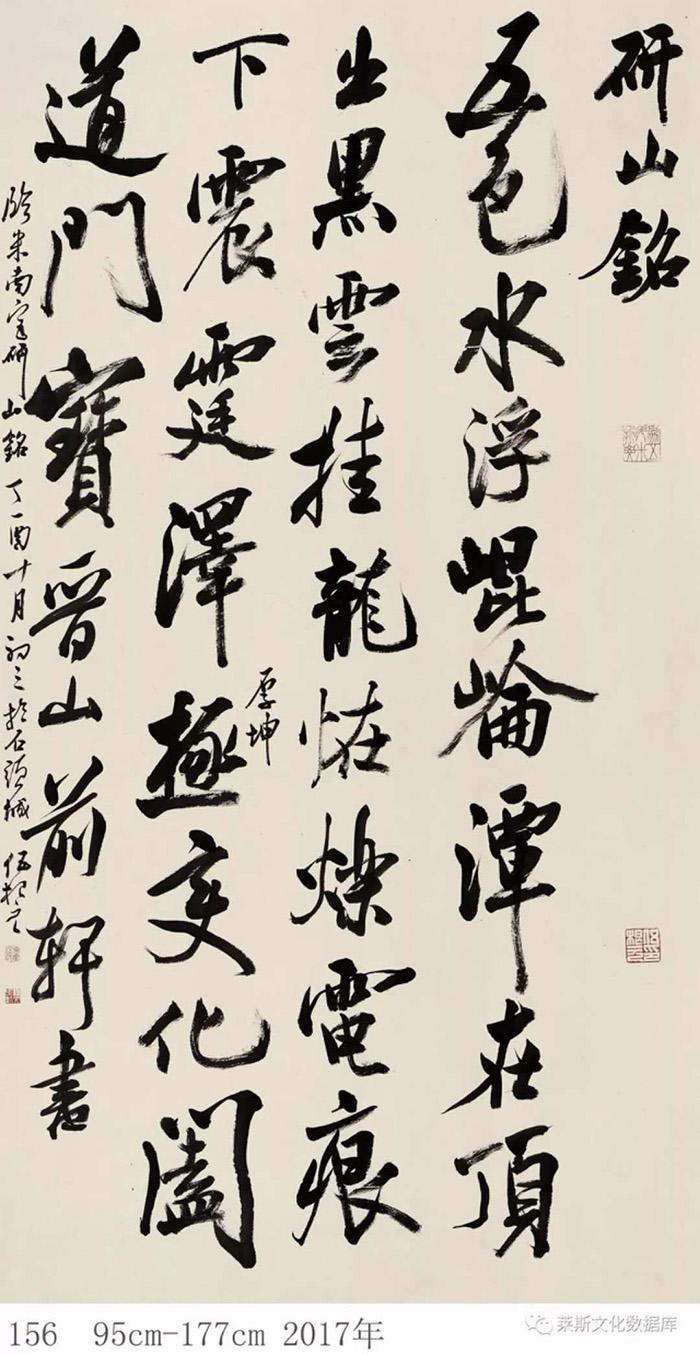 研山銘
五色水浮崐崘潭在頂
出黑雲挂龍恠爍電痕
下震霆澤極變化闔
厚坤
道門寶晉山前軒書
臨米南宮研山銘丁酉十月初三於石頭城
156 95cm-177cm 2017年
莱斯文化数据库